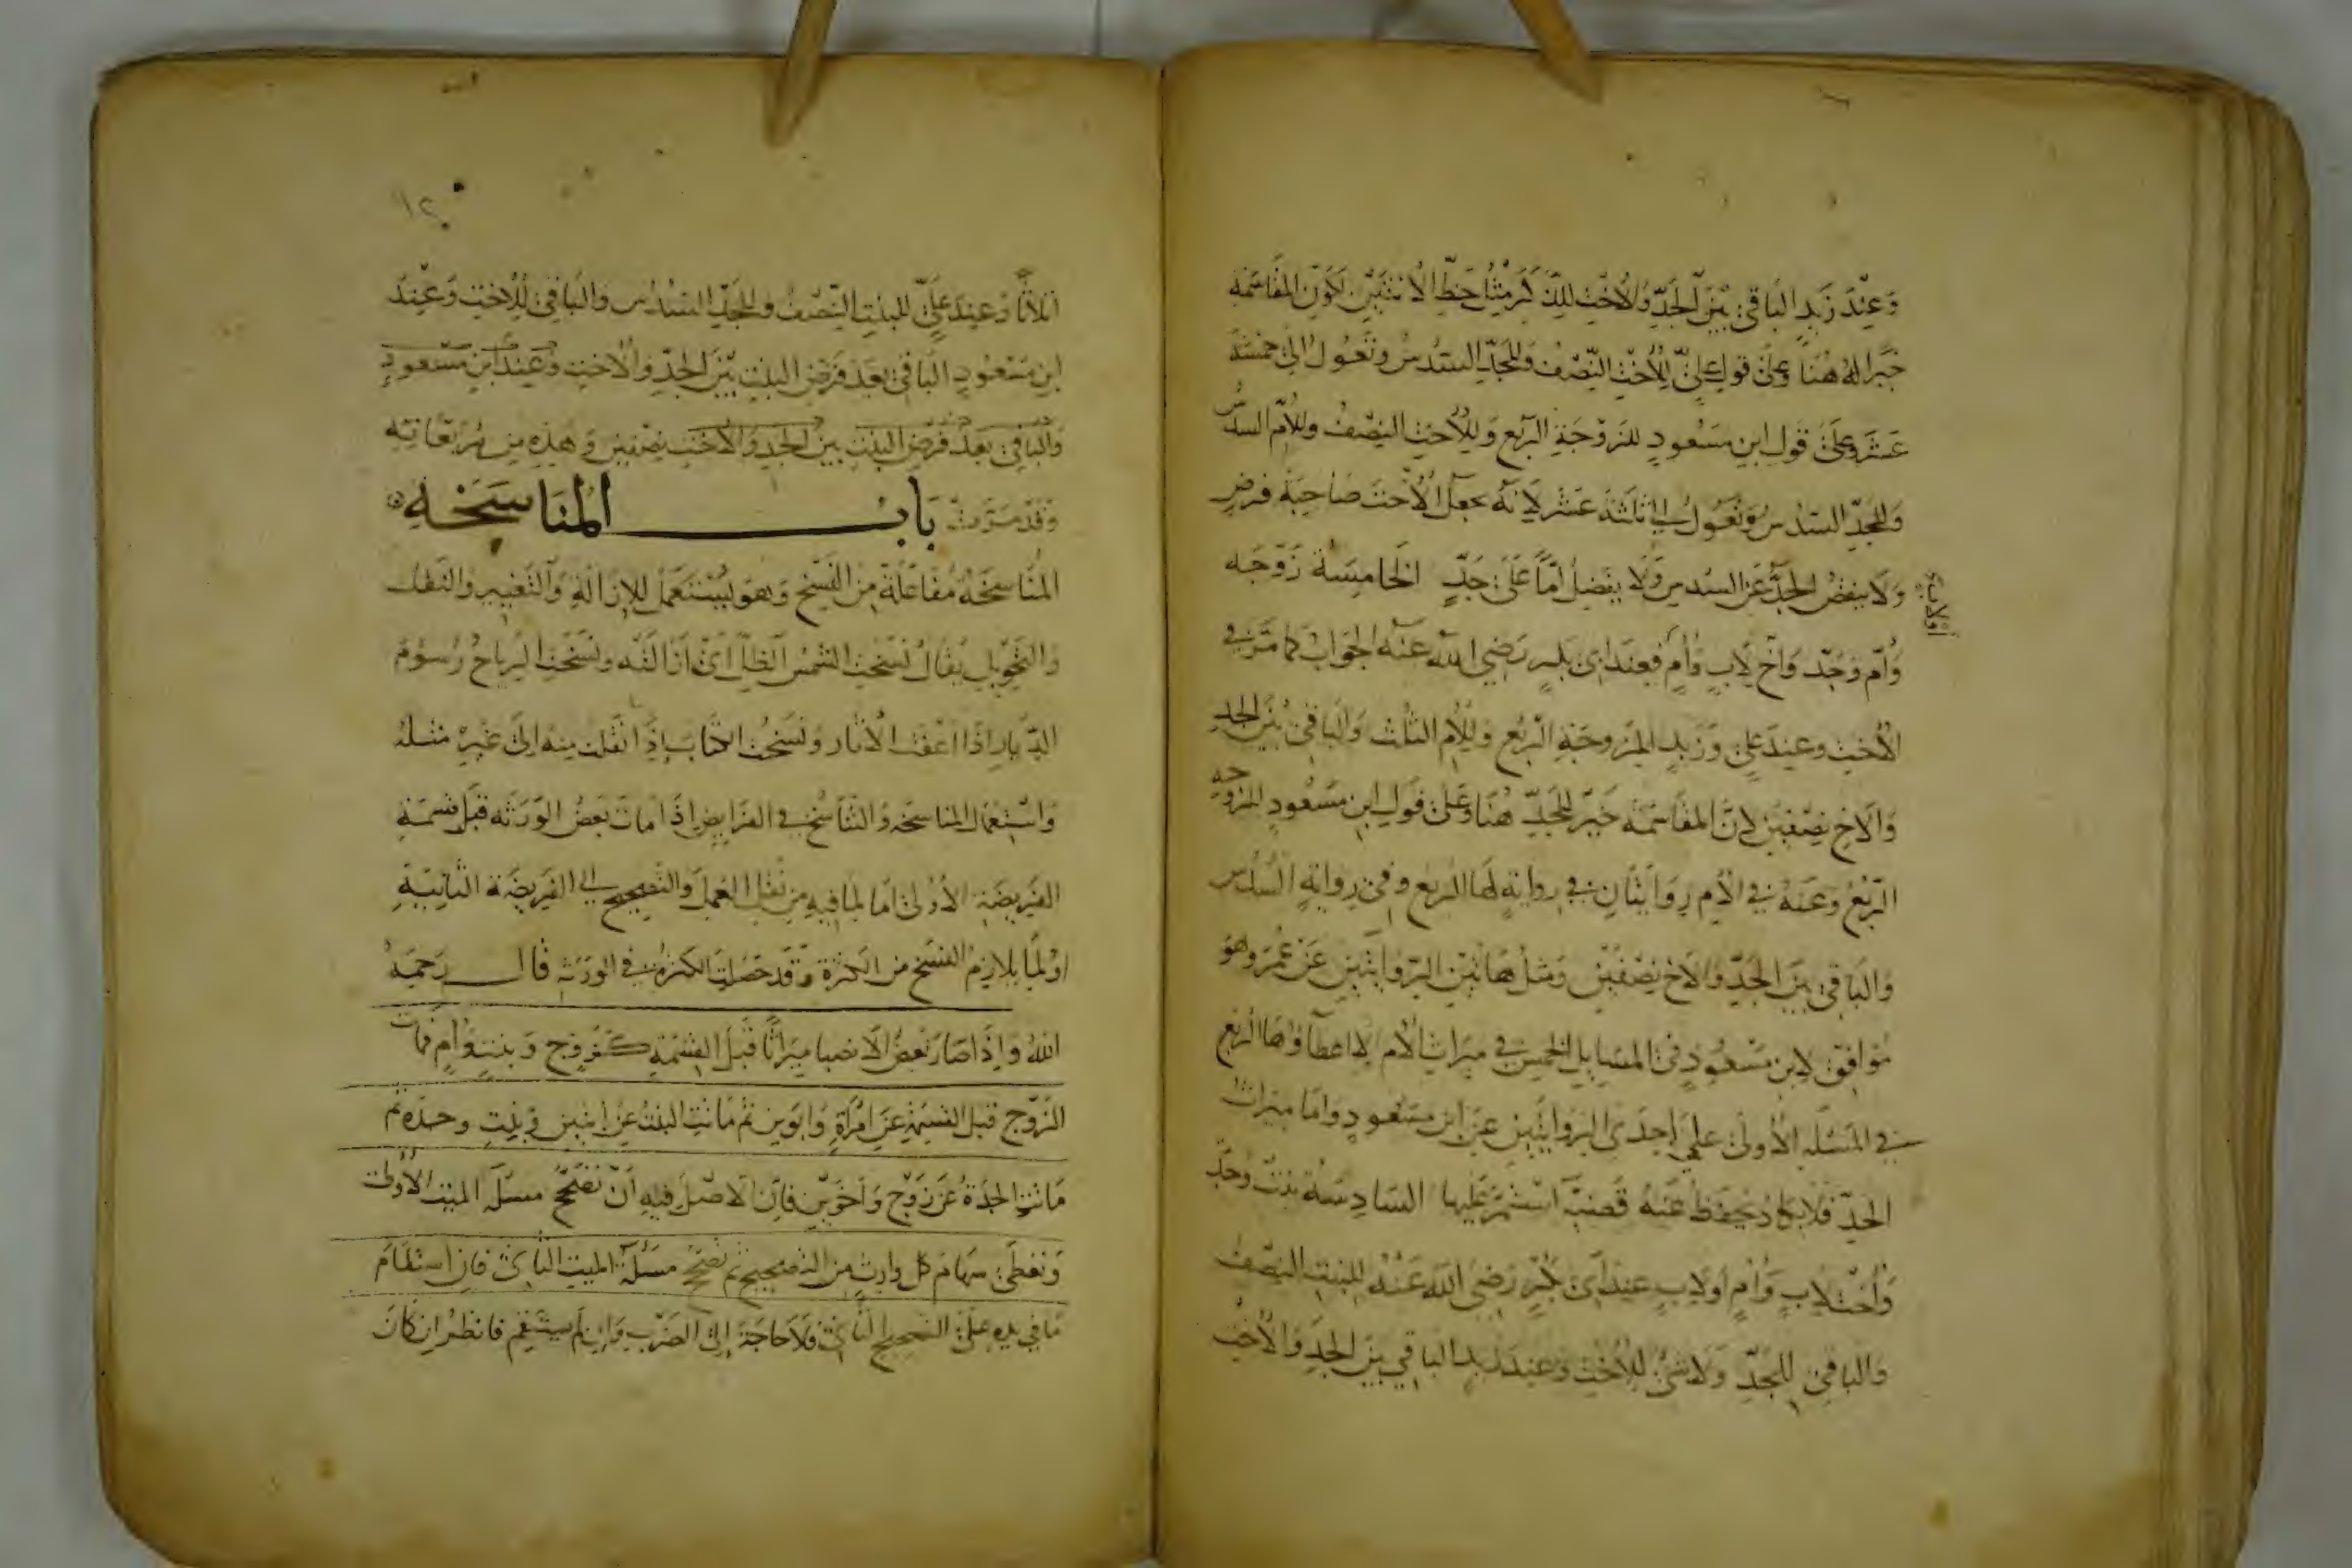 وَعِنْدَ زَيدٍ البَاقي بَيْنَ الجَدِّ وَالأُختِ للِذّكَرِ مثْلُ حَظّ الأُنثَيَيْنِ لكَوْنِ المُقَاسَمَةِ
خَيْرًا لهُ هُنَا وعَلى قولِ عَلىٍّ لِلأُخْتِ النِّصْفُ وَللجَدِّ السُّدسُ وتَعُولُ الى خمسَةَ
عَشَرَ وعَلَى قَولِ ابنِ مَسْعُودٍ للزَوْجَةِ الرّبُع وَللأُختِ النِصْفُ وللأُمّ السدسُ
وَللجَدِّ السّدسُ وَتَعُولُ الى ثلثَةَ عَشَرَ لانّهُ جعَلَ الأُختَ صَاحِبَةَ فرضٍ
وَلَا ينقصُ الجَدَّ عَن السُدسِ وَلَا يفَضِلُ امًّا عَلى جَدٍّ الخَامِسَة زَوْجَه
وَأُم وَجَدّ وَاخ لِأبٍ وَأُم فعِندَ ابى بكرٍ رَضي اللهُ عَنهُ الجوَابُ كما مَرَّ في
الأُختِ وعِندَ عَلى وَزَيدٍ للزَوجَةِ الرّبُع وَللأم الثلُث وَالبَاقي بيْنَ الجدِ
وَالاخِ نِصْفَيْنِ لانَّ المقَاسَمَة خَيرٌ للجَدِّ هُنَا وَعَلى قولِ ابنِ مَسْعُودٍ للزوجه
الرّبُعُ وَعَنهُ في الأُم رِوَايتَانِ في روايةٍ لَها الربع وَفى رِوايةٍ السُّدس
وَالبَاقي بينَ الجَدِّ وَالاَخ نِصْفَيْنِ وَمثلُ هَاتَيْنِ الرّوايتَينِ عَنْ عُمَر وَهوَ
مُوَافِق لابنِ مَسْعُودٍ في المسَايلِ الخَمسِ في ميرَاثِ الأُم لا اعطاؤهَا الربع
في المَسْئَلَةِ الأولى على احِدَى الرّوَايتَينِ عن ابن مسَعُودٍ وَامّا مِيرَاث
الجدِّ فلا يكادُ يُحفَظُ عَنهُ قَضيّة اسْتَمَرَّ عَليها السّادِسَة بنت وَجَدّ
وَأُخت لابٍ وَأُمٍ اوْلابٍ عِندَ ابى بَكرٍ رَضي اللهُ عَنْهُ للبنتِ النِصْفُ
وَالباقي للجَدّ وَلَاشىَ للأختِ وَعِند زَيد الباقي بيْنَ الجدِّ وَالأُختِ
اولاب
١٢٠
اثلاثًا وَعِندَ عَلىٍّ للبنتِ النّصْفُ وللجَدِّ السّدُس وَالبَاقي للأُختِ وَعِندَ
ابنِ مَسْعُودٍ البَاقي بعَدَ فَرضِ البنتِ بيْنَ الجدِّ وَالأُختِ وَعِندَ ابنِ مَسْعُودٍ
وَالبَاقي بَعدَ فَرضِ البِنتِ بينَ الجَدِ وَالأُختِ نِصْفَينِ وَهذِهِ مِن مُرَبَّعَاتِهِ
وَقَدْ مَرَّت بَابُ المُنَاسَخَةِ
المُنَاسَخَةُ مُفَاعَلَةٌ مِن النَسْخِ وَهوَ يُسْتَعمَلُ للإزَالَةِ وَالتغيِيرِ وَالنَقلِ
وَالتحْوِيلِ يُقَالُ نَسَخَتِ الشَمْسُ الظلّ اىْ ازَالَتْهُ ونَسَخَتِ الرِيَاحُ رُسُومَ
الدّيَارِ اذَا اعَفَتِ الأثَارَ ونَسَخْتُ الكتَابَ اذَا نَقَلتَ مِنهُ الى غَيرهِ مثلهُ
وَاسْتِعْمَال المناسَخَه وَالتّنَاسُخِ في الفرَايضِ اذَا مَاتَ بَعضُ الوَرَثَه قبَلَ قسْمَةِ
الفَريضَةِ الأُولى امّا لمَا فيهِ مِن نَقلِ العَملِ وَالتصحِيحِ الى الفَريضَة الثانِيَةِ
اوْلمَا يلازمُ النسْخ مِن الكثرة وَقد حَصَلَتِ الكثرة في الوَرَثةِ قال رَحِمَهُ
اللهُ وَاذَا صَارَ بَعضُ الأنصِبَا ميرَاثًا قَبلَ القِسْمَةِ كَزَوج وَبنتٍ وَأُم فَمات
الزّوج قبلَ القسمَةِ عَن امْرَأةٍ وَابَوينِ ثُم مَاتتِ البنتُ عَن ابنينِ وَبنتٍ وجدّه ثُم
مَاتتِ الجدّةُ عَن زَوْج وَاخَوَيْنِ فَاِنَّ الاصْلَ فيهِ انْ تُصَحّحَ مسئلَة الميّت الأولى
وَتُعطىَ سهَام كُلّ وارثٍ مِن التصحيح ثُم تُصَحِح مسْئلَة الميتِ الثانى فَانِ اسْتقَامَ
مَا في يدِهِ عَلى التصحيح الثانى فَلَا حَاجَةَ الى الضَربِ وَاِن لم يسْتقِم فانظُر ان كَانَ